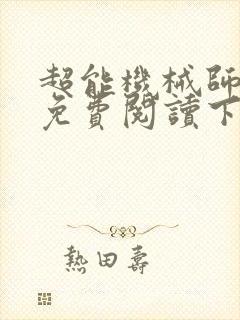 超能機械師
免費閱讀下
熱田壽